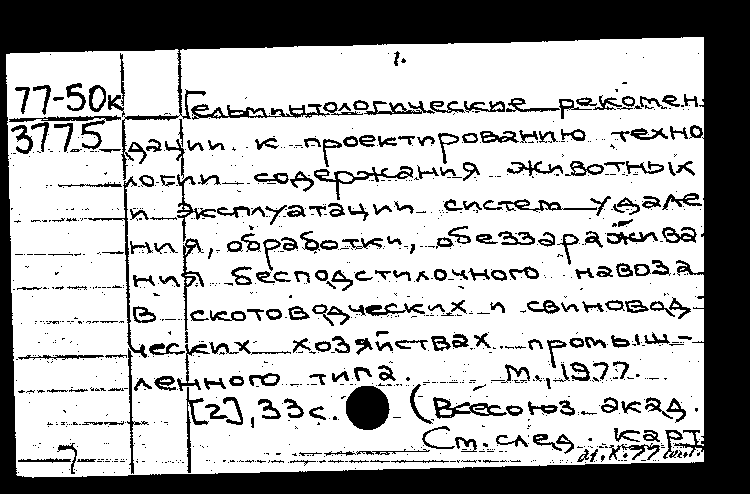 1.
77-50к Гельминтологические рекомен-
3775 дации к проектированию техно
логии содержания животных
и эксплуатации систем удале
ния, обработки, обеззаражива-
ния бесподстилочного навоза
в скотоводческих и свиновод-
ческих хозяйствах промыш-
ленного типа. М., 1977.
[2], 33 с. (Всесоюз. акад.
См. след. карт.